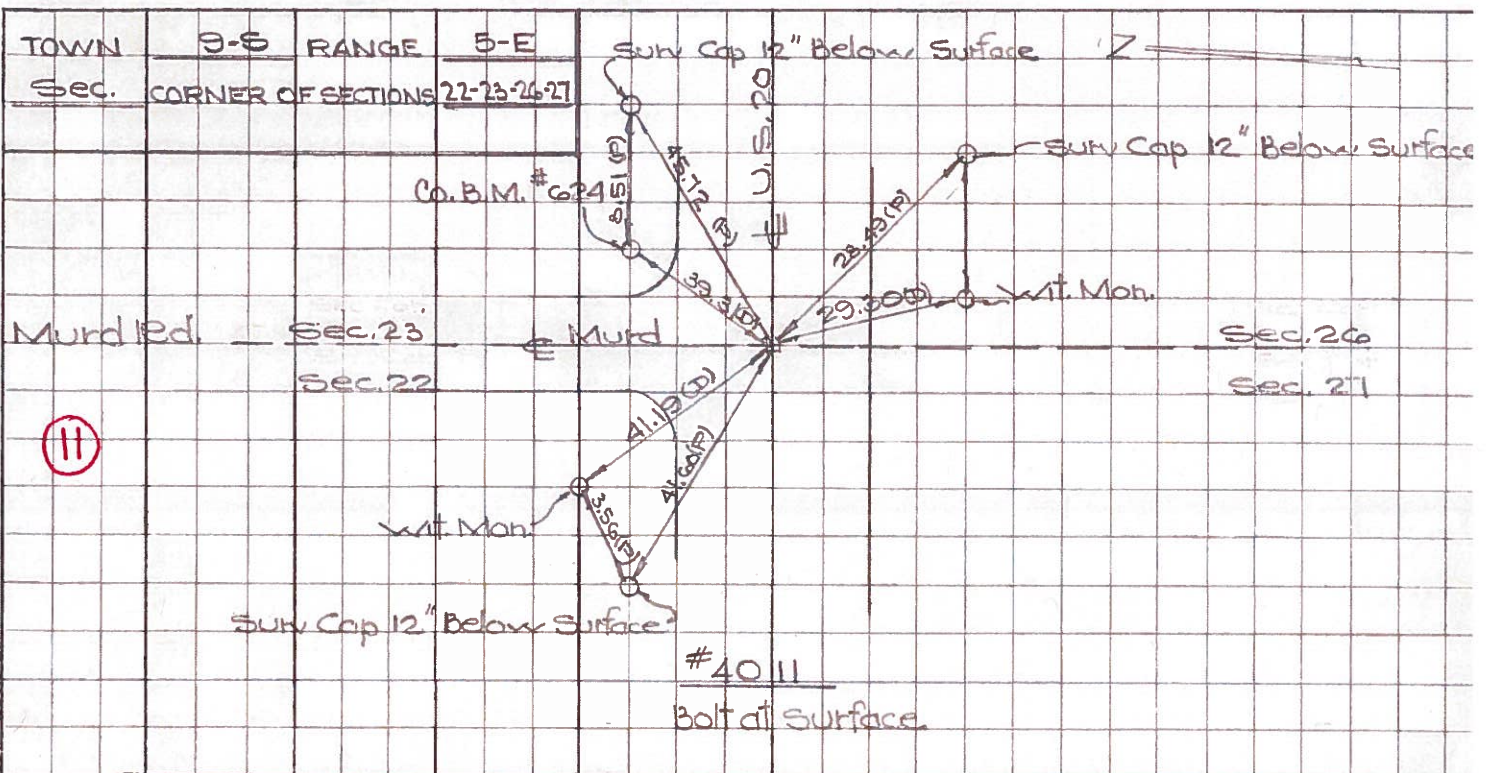 TOWN 9-S RANGE 5-E
Sec. CORNER OF SECTIONS 22-23-26-27
Surv Cap 12" Below Surface
Z
U.S. 20
Surv Cap 12" Below Surface
Co. B.M. #624
8.51 (P)
45.72 (P)
28.49 (P)
39.3 (D)
29.30 (D)
Wit. Mon.
Murd Rd.
Sec. 23
℄ Murd
Sec. 26
Sec. 22
Sec. 27
11
41.19 (D)
41.60 (P)
Wit. Mon.
3.56 (P)
Surv Cap 12" Below Surface
#4011
Bolt at Surface